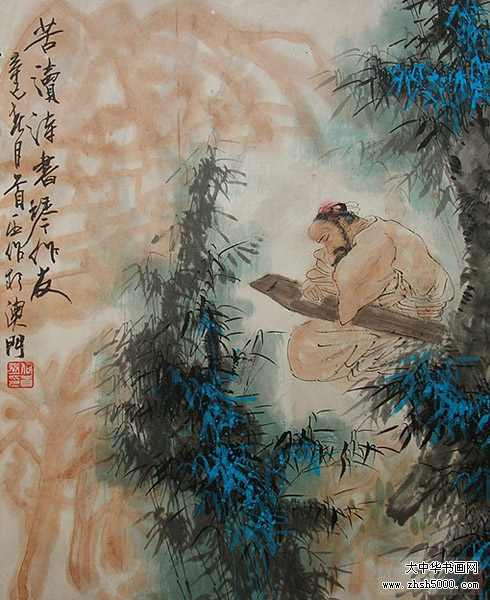 苦讀詩書琴作友
辛巳月作於澳門
大中华书画网
www.zhsh5000.com